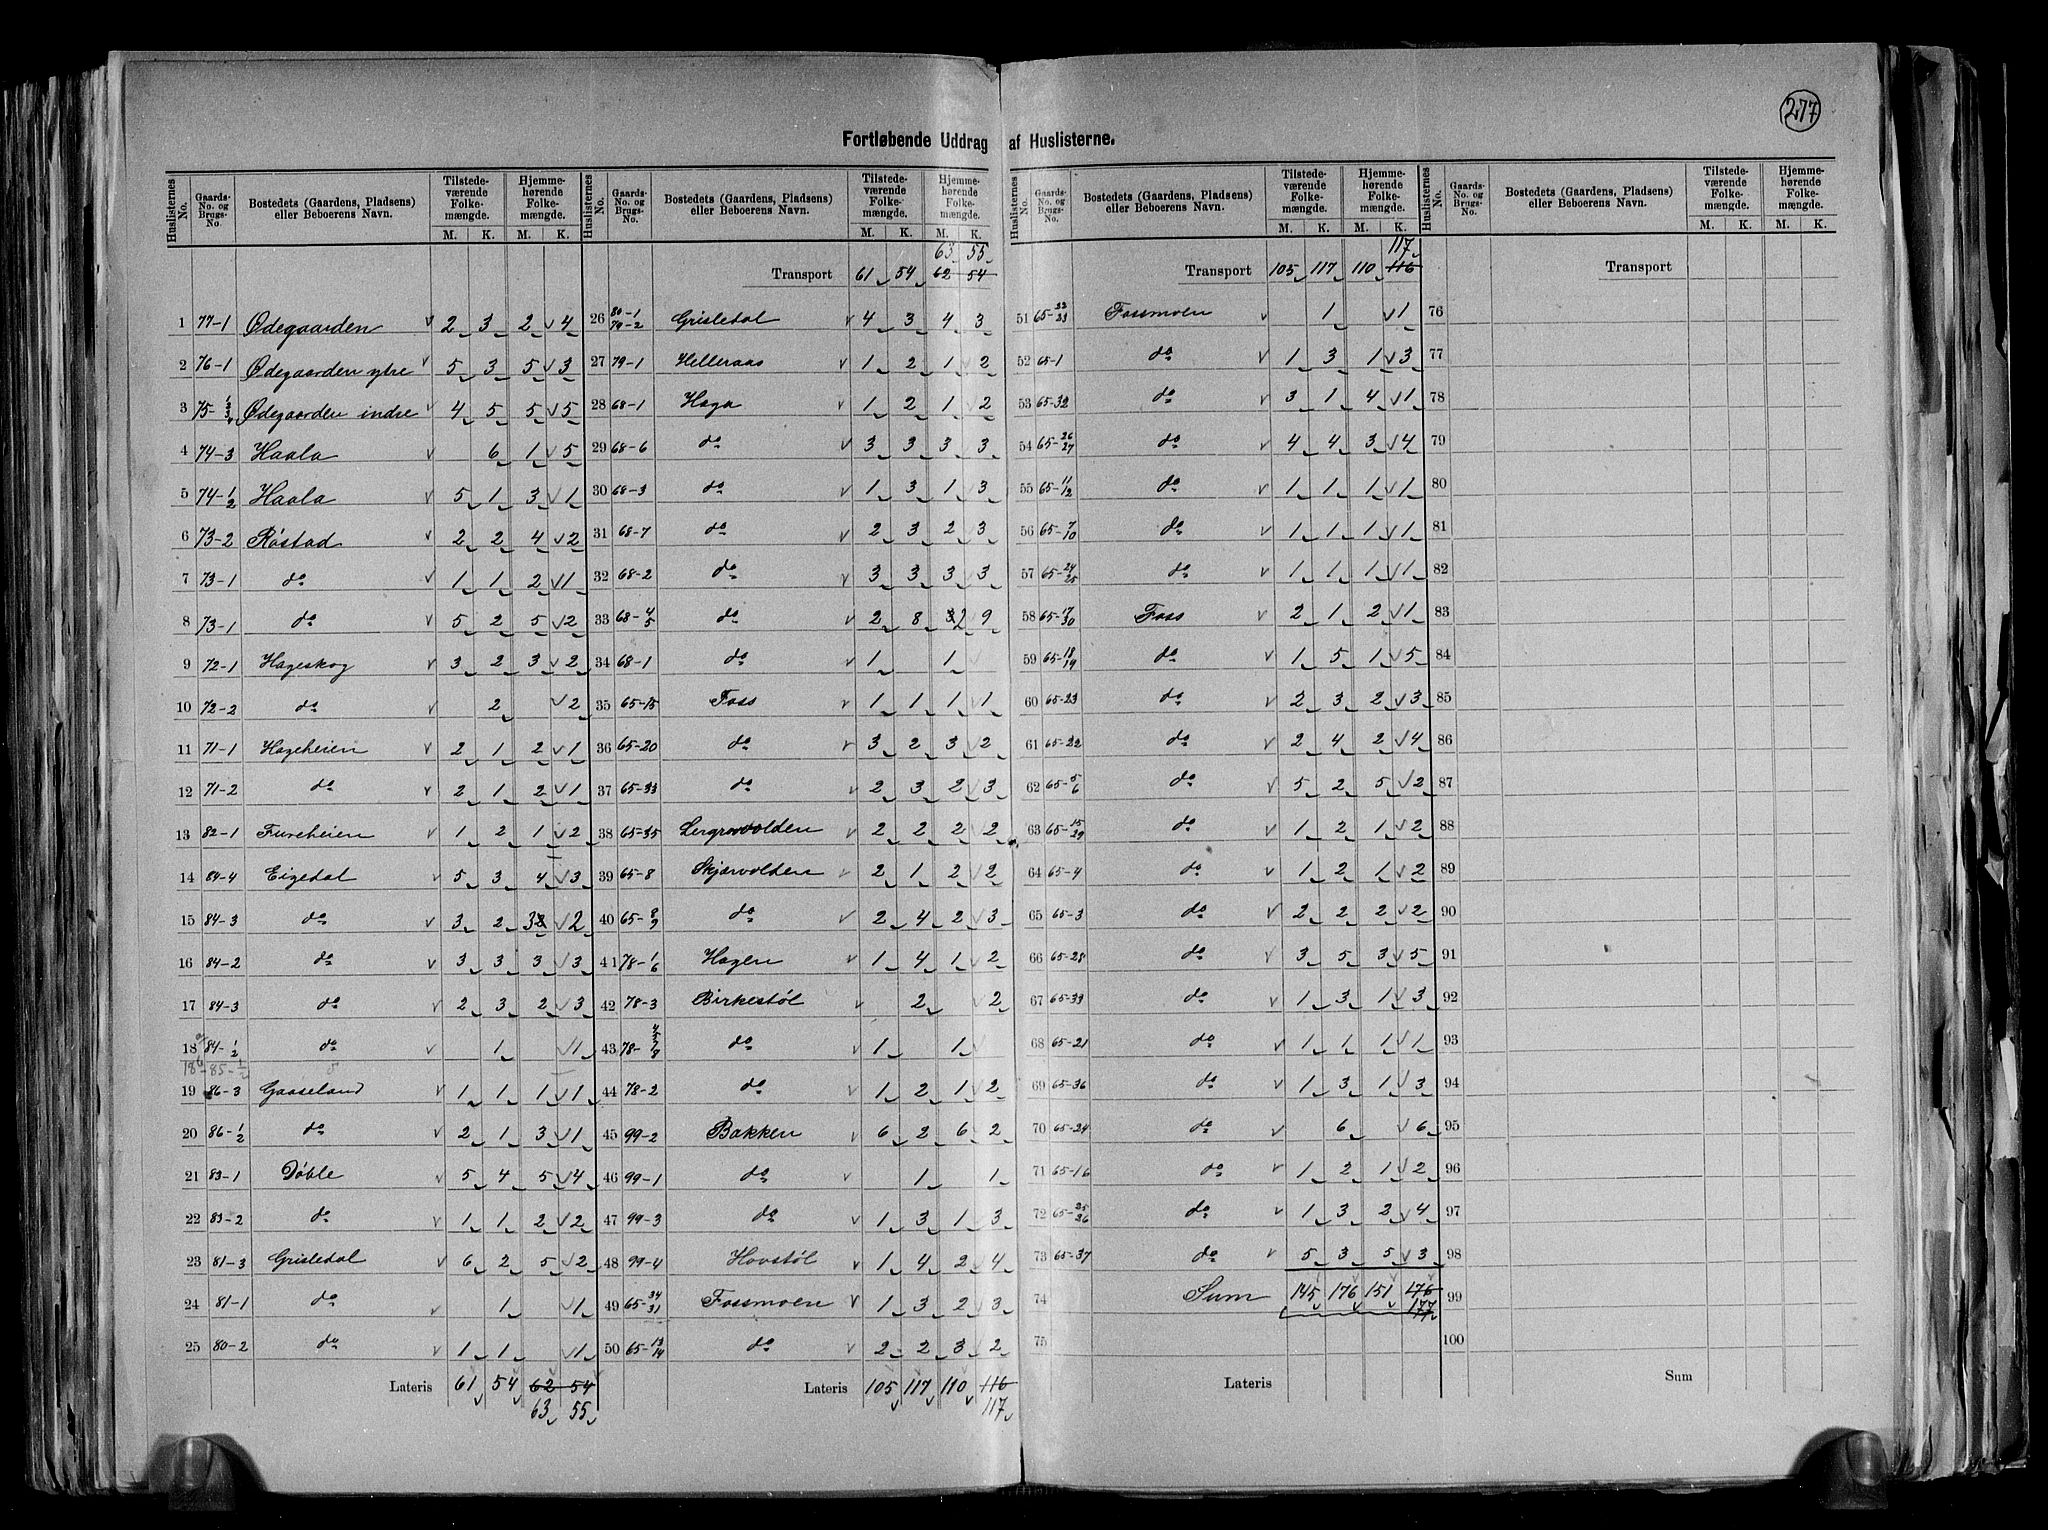 277
Fortløbende Uddrag af Huslisterne.
Huslisternes No. Gaards-No. og Brugs-No. Bostedets (Gaardens, Pladsens) eller Beboerens Navn. Tilstedeværende Folkemængde. M. K. Hjemmehørende Folkemængde. M. K.
1 77-1 Ødegaarden 2 3 2 4
2 76-1 Ødegaarden ytre 5 3 5 3
3 75- Ødegaarden indre 4 5 5 5
4 74-3 Haala 6 1 5
5 74-1/2 Haala 5 1 3 1
6 73-2 Røstad 2 2 4 2
7 73-1 do 1 1 2 1
8 73-1 do 5 2 5 2
9 72-1 Hageskog 3 2 3 2
10 72-2 do 2 2
11 71-1 Hageheien 2 1 2 1
12 71-2 do 2 1 2 1
13 82-1 Fureheien 1 2 1 2
14 84-4 Eigedal 5 3 4 3
15 84-3 do 3 2 3 2
16 84-2 do 3 3 3 3
17 84-3 do 2 3 2 3
18 84-1/2 do 1 1
18b -85-1/2
19 86-3 Gaaseland 1 1 1 1
20 86-1/2 do 2 1 3 1
21 83-1 Døble 5 4 5 4
22 83-2 do 1 1 2 2
23 81-3 Grisledal 6 2 5 2
24 81-1 do 1 1
25 80-2 do 1 1 1
Lateris 61 54 62 54
63 55
Huslisternes No. Gaards-No. og Brugs-No. Bostedets (Gaardens, Pladsens) eller Beboerens Navn. Tilstedeværende Folkemængde. M. K. Hjemmehørende Folkemængde. M. K.
63 55
Transport 61 54 62 54
26 80-1 79-2 Grisledal 4 3 4 3
27 79-1 Helleraas 1 2 1 2
28 68-1 Haga 1 2 1 2
29 68-6 do 3 3 3 3
30 68-3 do 1 3 1 3
31 68-7 do 2 3 2 3
32 68-2 do 3 3 3 3
33 68-4/5 do 2 8 2 9
34 68-1 do 1 1
35 65-15 Foss 1 1 1 1
36 65-20 do 3 2 3 2
37 65-33 do 2 3 2 3
38 65-35 Lergravolden 2 2 2 2
39 65-8 Skjærvolden 2 1 2 2
40 65-8/9 do 2 4 2 3
41 78-1/6 Hagen 1 4 1 2
42 78-3 Birkestøl 2 2
43 78- do 1 1
44 78-2 do 1 2 1 2
45 99-2 Bakken 6 2 6 2
46 99-1 do 1 1
47 99-3 do 1 3 1 3
48 99-4 Hovstøl 1 4 2 4
49 65-34/31 Fossmoen 1 3 2 3
50 65-13/14 do 2 2 3 2
Lateris 105 117 110 116
117
Huslisternes No. Gaards-No. og Brugs-No. Bostedets (Gaardens, Pladsens) eller Beboerens Navn. Tilstedeværende Folkemængde. M. K. Hjemmehørende Folkemængde. M. K.
117
Transport 105 117 110 116
51 65-22/23 Fossmoen 1 1
52 65-1 do 1 3 1 3
53 65-32 do 3 1 4 1
54 65-26/27 do 4 4 3 4
55 65-11/12 do 1 1 1 1
56 65-7/10 do 1 1 1 1
57 65-24/25 do 1 1 1 1
58 65-17/30 Foss 2 1 2 1
59 65-18/19 do 1 5 1 5
60 65-23 do 2 3 2 3
61 65-22 do 2 4 2 4
62 65-5/6 do 5 2 5 2
63 65-15/29 do 1 2 1 2
64 65-4 do 1 2 1 2
65 65-3 do 2 2 2 2
66 65-28 do 3 5 3 5
67 65-39 do 1 3 1 3
68 65-21 do 1 1 1 1
69 65-36 do 1 3 1 3
70 65-24 do 6 6
71 65-16 do 1 2 1 2
72 65-25/26 do 1 3 2 4
73 65-37 do 5 3 5 3
74 Sum 145 176 151 176
177
75
Lateris
Huslisternes No. Gaards-No. og Brugs-No. Bostedets (Gaardens, Pladsens) eller Beboerens Navn. Tilstedeværende Folkemængde. M. K. Hjemmehørende Folkemængde. M. K.
Transport
76
77
78
79
80
81
82
83
84
85
86
87
88
89
90
91
92
93
94
95
96
97
98
99
100
Sum